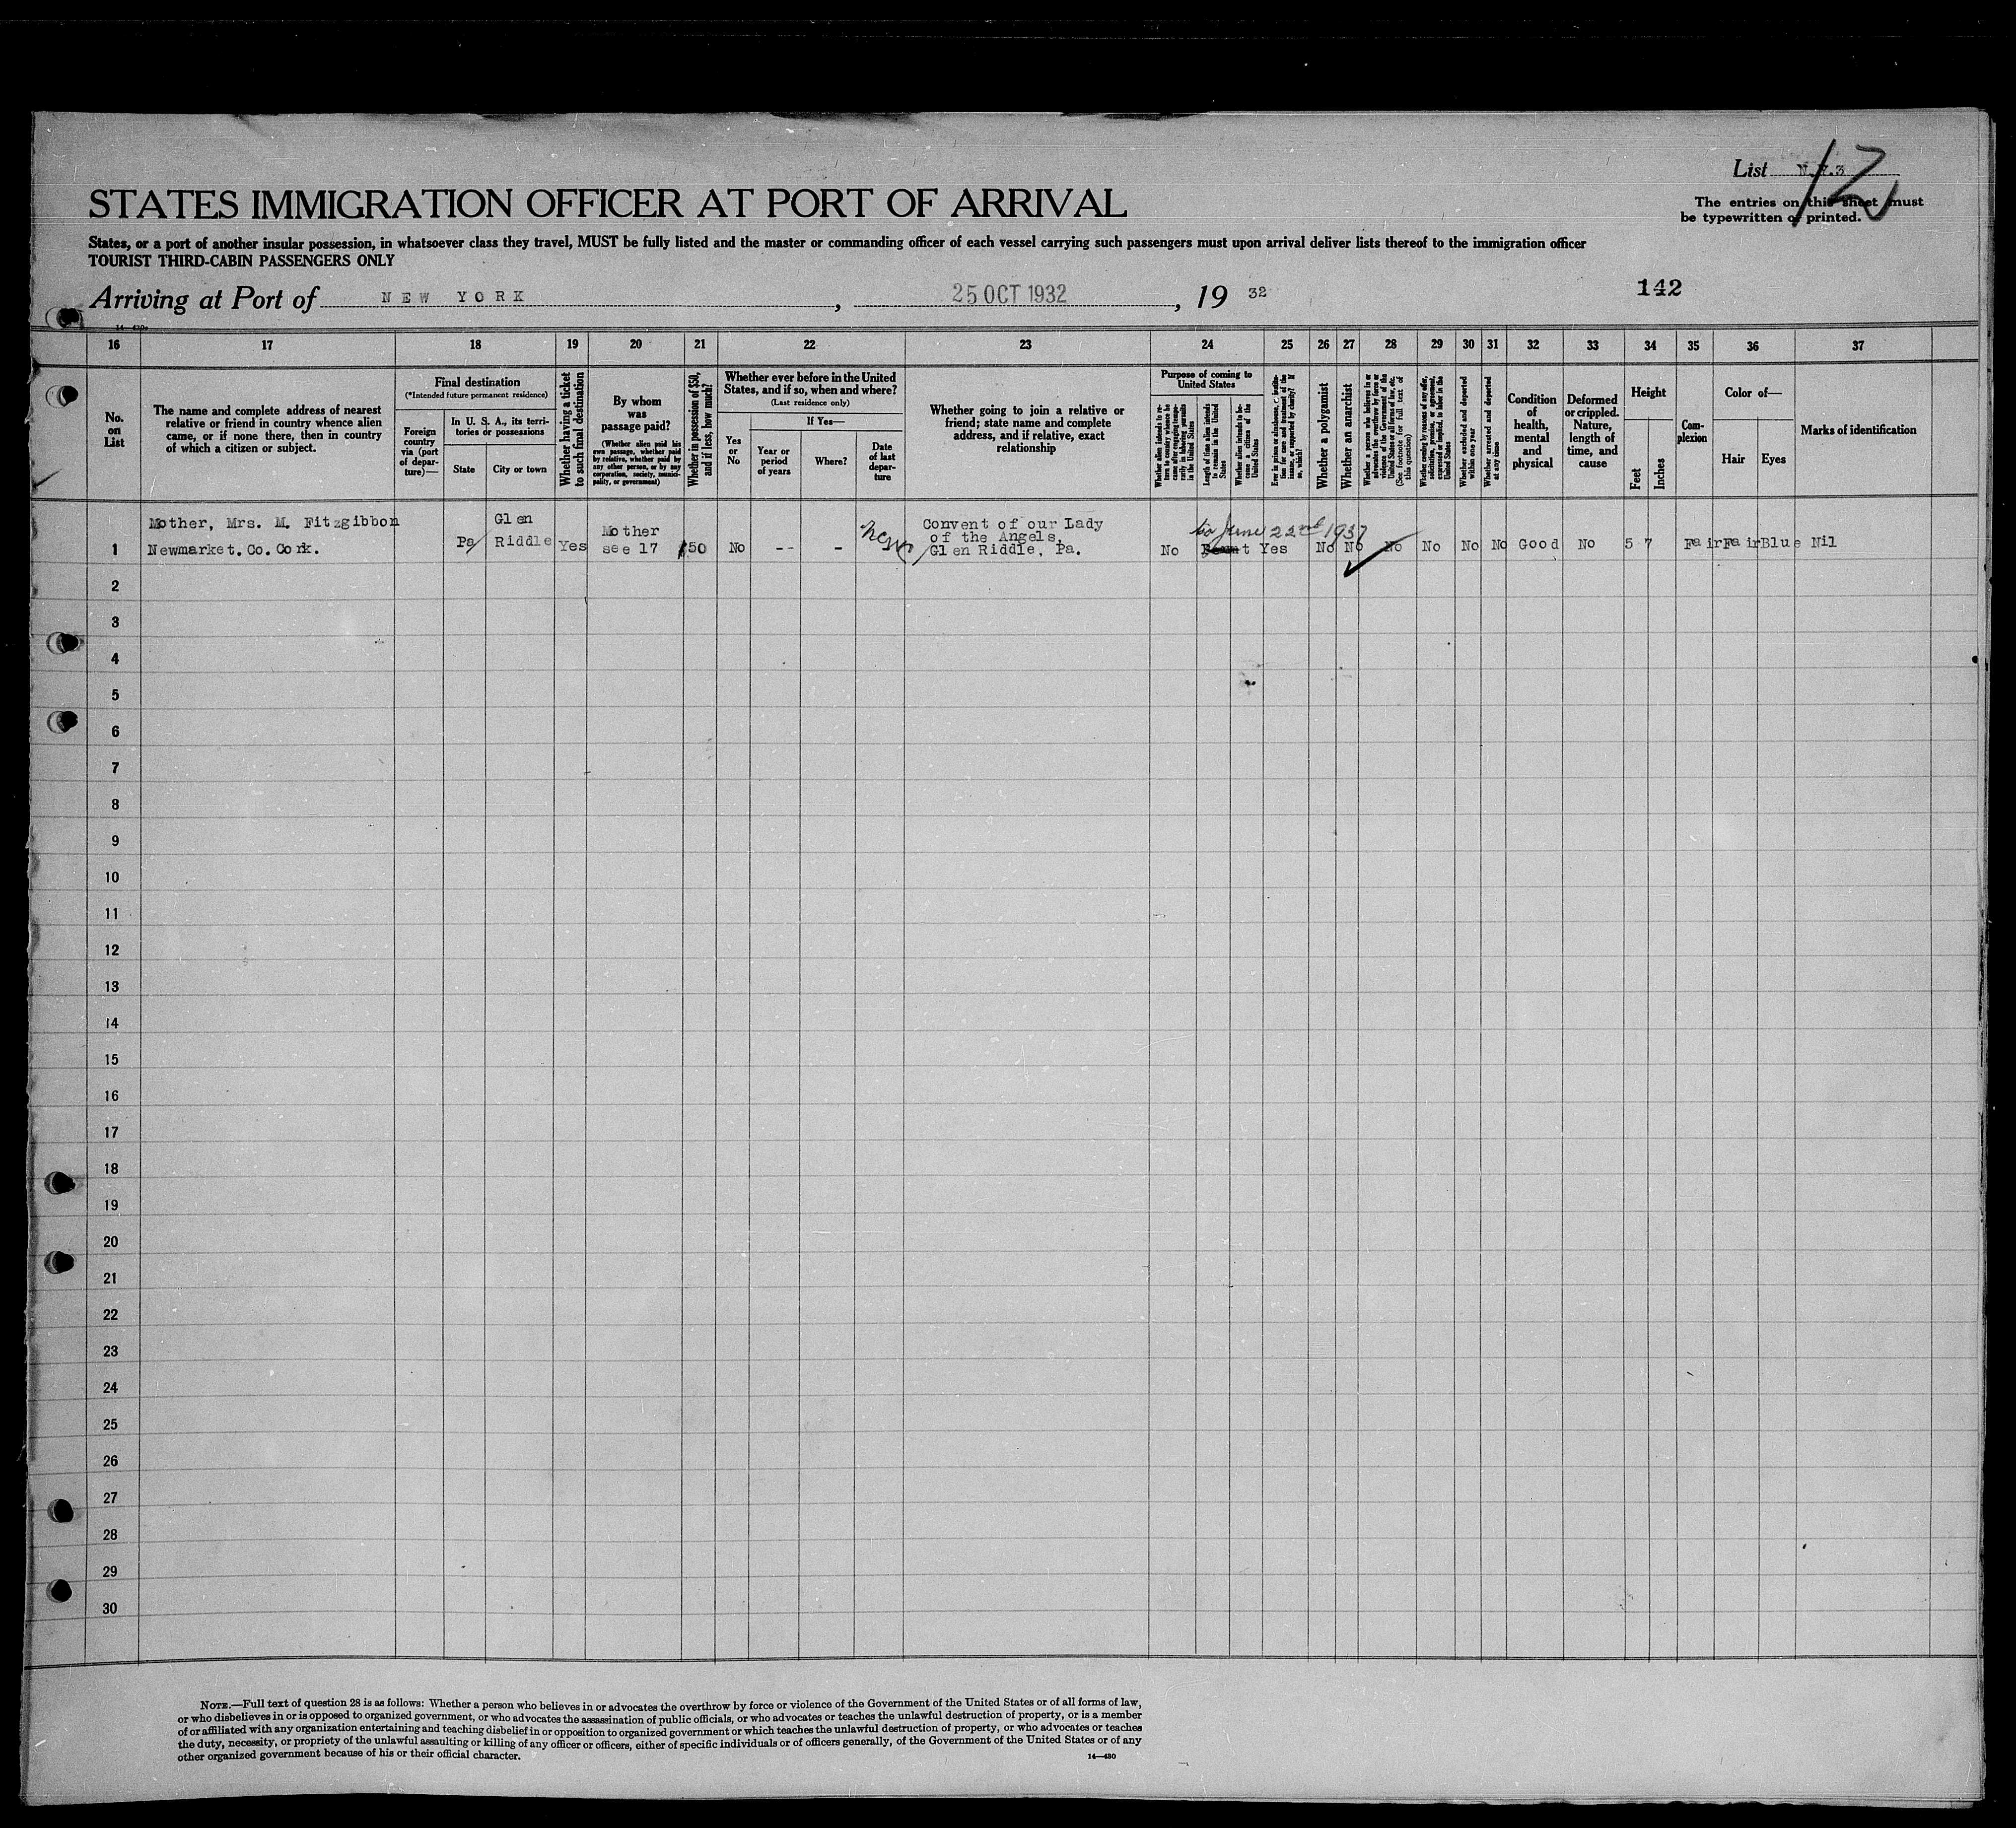 List N.Y.3
12
STATES IMMIGRATION OFFICER AT PORT OF ARRIVAL
The entries on this sheet must
be typewritten or printed.
States, or a port of another insular possession, in whatsoever class they travel, MUST be fully listed and the master or commanding officer of each vessel carrying such passengers must upon arrival deliver lists thereof to the immigration officer
TOURIST THIRD-CABIN PASSENGERS ONLY
Arriving at Port of NEW YORK, 25 OCT 1932, 19 32
142
14—430
16 17 18 19 20 21 22 23 24 25 26 27 28 29 30 31 32 33 34 35 36 37
No.
on
List
The name and complete address of nearest
relative or friend in country whence alien
came, or if none there, then in country
of which a citizen or subject.
Final destination
(*Intended future permanent residence)
Foreign
country
via (port
of depar-
ture)—
In U. S. A., its terri-
tories or possessions
State
City or town
Whether having a ticket
to such final destination
By whom
was
passage paid?
(Whether alien paid his
own passage, whether paid
by relative, whether paid by
any other person, or by any
corporation, society, munici-
pality, or government)
Whether in possession of $50,
and if less, how much?
Whether ever before in the United
States, and if so, when and where?
(Last residence only)
Yes
or
No
If Yes—
Year or
period
of years
Where?
Date
of last
depar-
ture
Whether going to join a relative or
friend; state name and complete
address, and if relative, exact
relationship
Purpose of coming to
United States
Whether alien intends to re-
turn to country whence he
came after engaging tempo-
rarily in laboring pursuits
in the United States
Length of time alien intends
to remain in the United
States
Whether alien intends to be-
come a citizen of the
United States
Ever in prison or almshouse, or institu-
tion for care and treatment of the
insane, or supported by charity? If
so, which?
Whether a polygamist
Whether an anarchist
Whether a person who believes in or
advocates the overthrow by force or
violence of the Government of the
United States or all forms of law, etc.
(See footnote for full text of
this question)
Whether coming by reasons of any offer,
solicitation, promise, or agreement,
expressed or implied, to labor in the
United States
Whether excluded and deported
within one year
Whether arrested and deported
at any time
Condition
of
health,
mental
and
physical
Deformed
or crippled.
Nature,
length of
time, and
cause
Height
Feet
Inches
Com-
plexion
Color of—
Hair
Eyes
Marks of identification
Mother, Mrs. M. Fitzgibbon
Newmarket.Co.Cork.
Pa
Glen
Riddle
Yes
Mother
see 17
$50
No
--
-
Convent of our Lady
of the Angels,
Glen Riddle, Pa.
No
June 22nd 1937
Yes
No No No No No No Good No 5 7 Fair Fair Blue Nil
1
2
3
4
5
6
7
8
9
10
11
12
13
14
15
16
17
18
19
20
21
22
23
24
25
26
27
28
29
30
NOTE.—Full text of question 28 is as follows: Whether a person who believes in or advocates the overthrow by force or violence of the Government of the United States or of all forms of law,
or who disbelieves in or is opposed to organized government, or who advocates the assassination of public officials, or who advocates or teaches the unlawful destruction of property, or is a member
of or affiliated with any organization entertaining and teaching disbelief in or opposition to organized government or which teaches the unlawful destruction of property, or who advocates or teaches
the duty, necessity, or propriety of the unlawful assaulting or killing of any officer or officers, either of specific individuals or of officers generally, of the Government of the United States or of any
other organized government because of his or their official character.
14—430